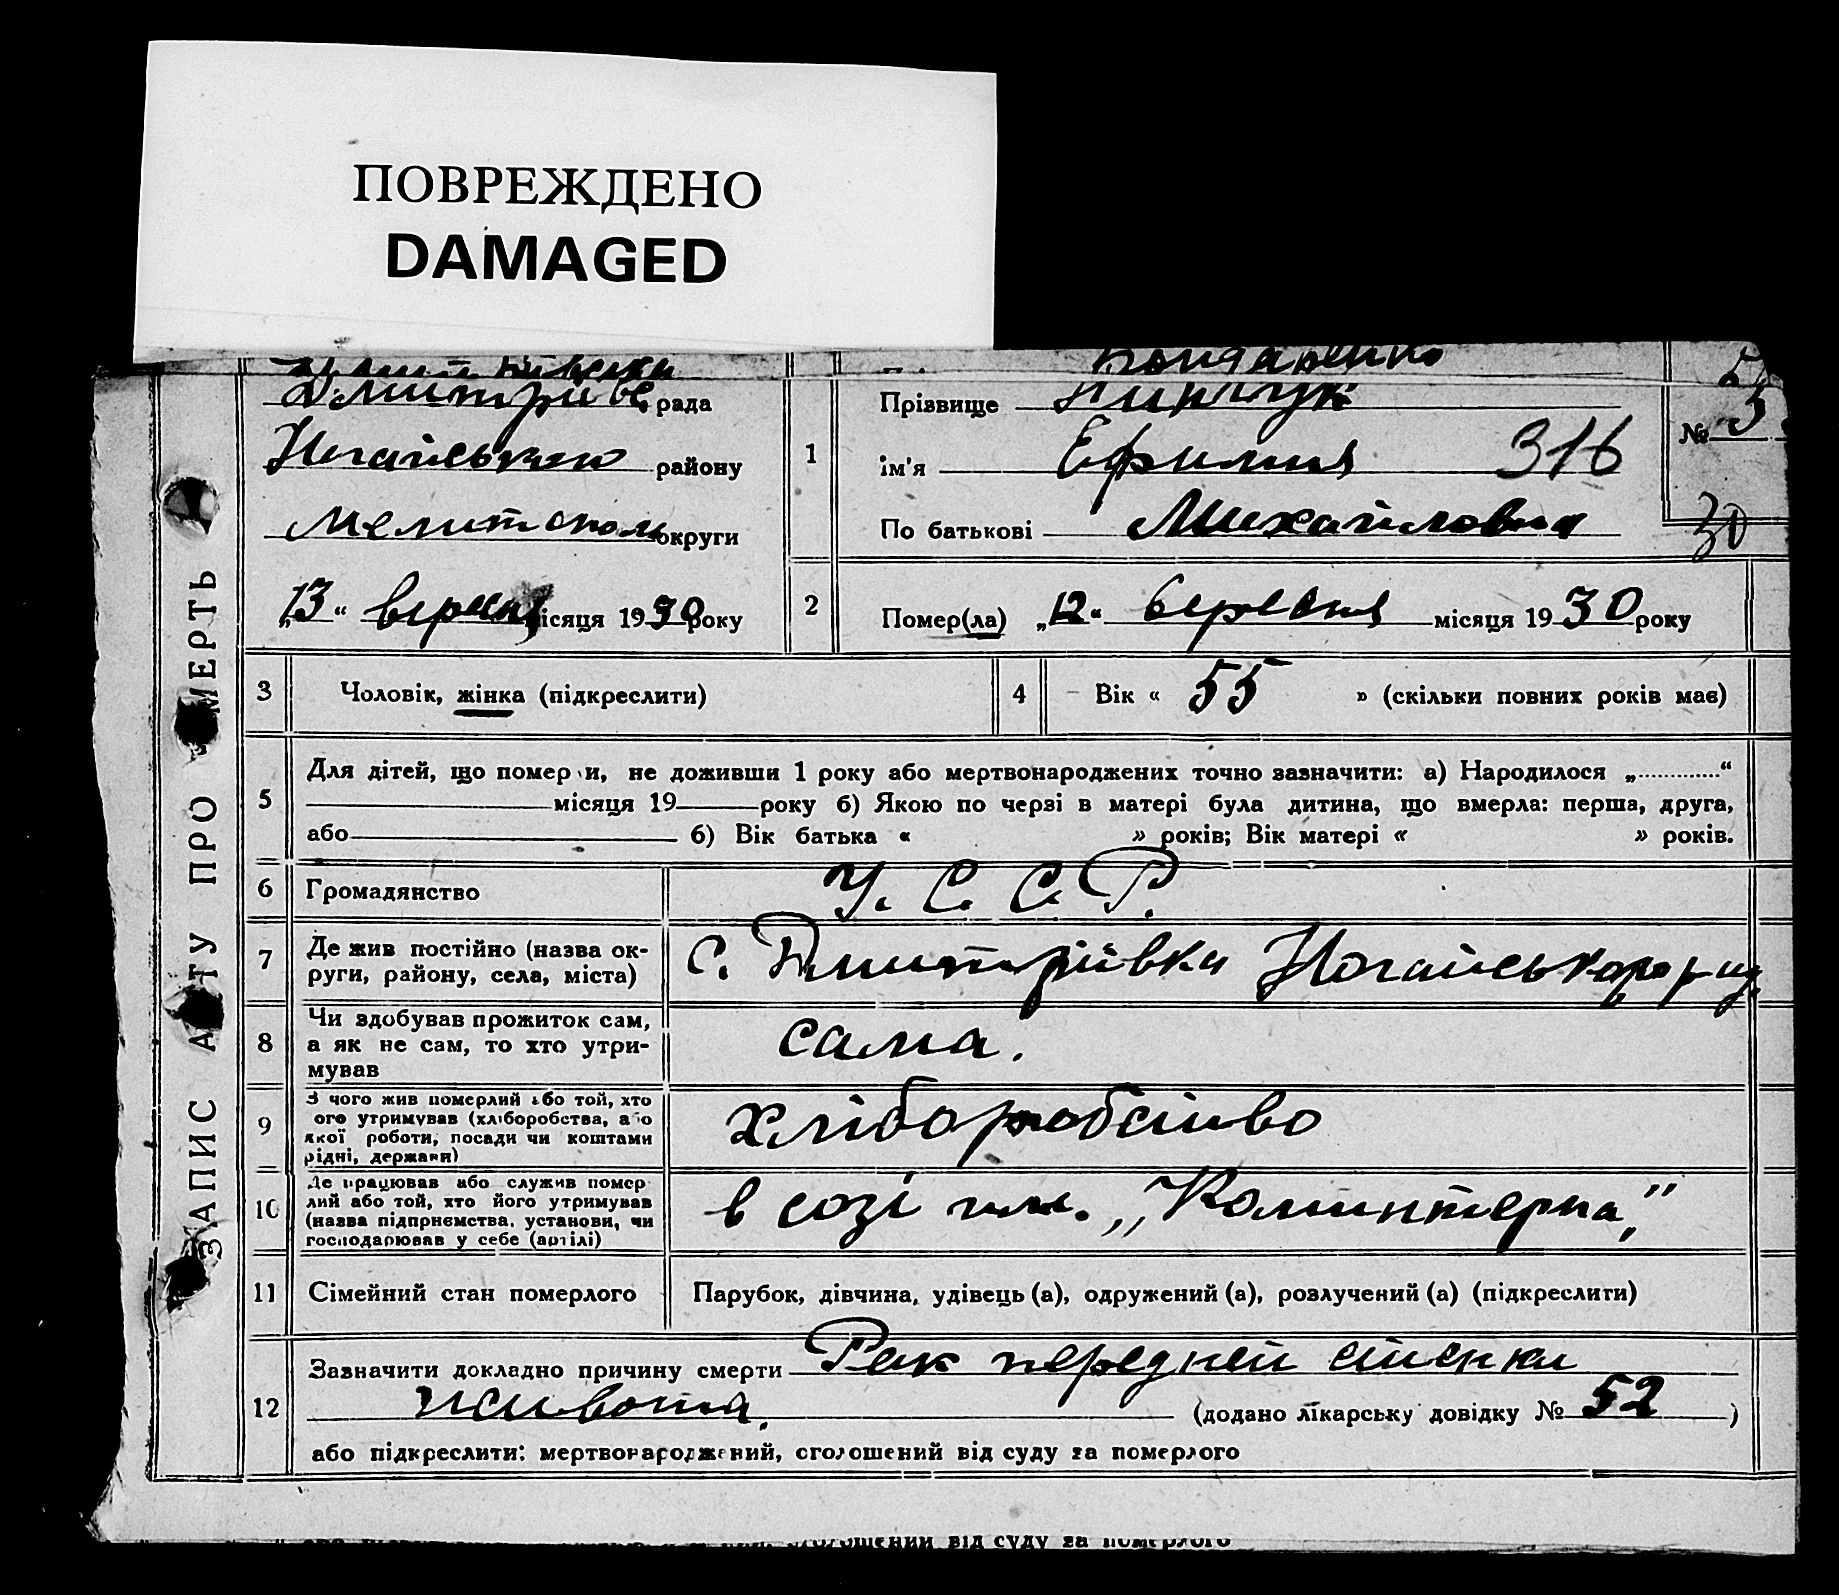 ПОВРЕЖДЕНО
DAMAGED
Бондаренко
рада Прізвище №
Ногайського району 1 ім'я Ефимия 316
Мелитополь округи По батькові Михайловна 30
„13“ вересня місяця 1930 року 2 Помер(ла) „12“ вересня місяця 1930 року
3 Чоловік, жінка (підкреслити) 4 Вік « 55 » (скільки повних років має)
5 Для дітей, що помер и, не доживши 1 року або мертвонароджених точно зазначити: а) Народилося „ “
місяця 19 року б) Якою по черзі в матері була дитина, що вмерла: перша, друга,
або б) Вік батька « » років; Вік матері « » років.
6 Громадянство У. С. С. Р.
7 Де жив постійно (назва ок-
руги, району, села, міста) с. Дмитріівка Ногайського
8 Чи здобував прожиток сам,
а як не сам, то хто утри-
мував сама.
9 З чого жив померлий або той, хто
ого утримував (хліборобства, або
якої роботи, посади чи коштами
рідні, держави) хліборобство
10 Де працював або служив помер
лий або той, хто його утримував
(назва підприємства, установи, чи
господарював у себе (артілі) в созі им. „Коминтерна“
11 Сімейний стан померлого Парубок, дівчина, удівець (а), одружений (а), розлучений (а) (підкреслити)
12 Зазначити докладно причину смерти Рак передней стенки
живота. (додано лікарську довідку № 52)
або підкреслити: мертвонароджений, сголошений від суду за померлого
ЗАПИС АКТУ ПРО СМЕРТЬ
від суду за померлого